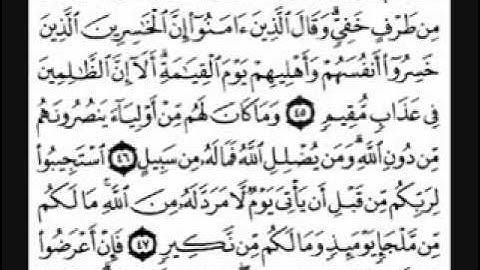 مِن طَرْفٍ خَفِيٍّ ۗ وَقَالَ ٱلَّذِينَ ءَامَنُوٓا۟ إِنَّ ٱلْخَٰسِرِينَ ٱلَّذِينَ
خَسِرُوٓا۟ أَنفُسَهُمْ وَأَهْلِيهِمْ يَوْمَ ٱلْقِيَٰمَةِ ۗ أَلَآ إِنَّ ٱلظَّٰلِمِينَ
فِى عَذَابٍ مُّقِيمٍ ٤٥ وَمَا كَانَ لَهُم مِّنْ أَوْلِيَآءَ يَنصُرُونَهُم
مِّن دُونِ ٱللَّهِ ۗ وَمَن يُضْلِلِ ٱللَّهُ فَمَا لَهُۥ مِن سَبِيلٍ ٤٦ ٱسْتَجِيبُوا۟
لِرَبِّكُم مِّن قَبْلِ أَن يَأْتِىَ يَوْمٌ لَّا مَرَدَّ لَهُۥ مِنَ ٱللَّهِ ۚ مَا لَكُم
مِّن مَّلْجَإٍ يَوْمَئِذٍ وَمَا لَكُم مِّن نَّكِيرٍ ٤٧ فَإِنْ أَعْرَضُوا۟